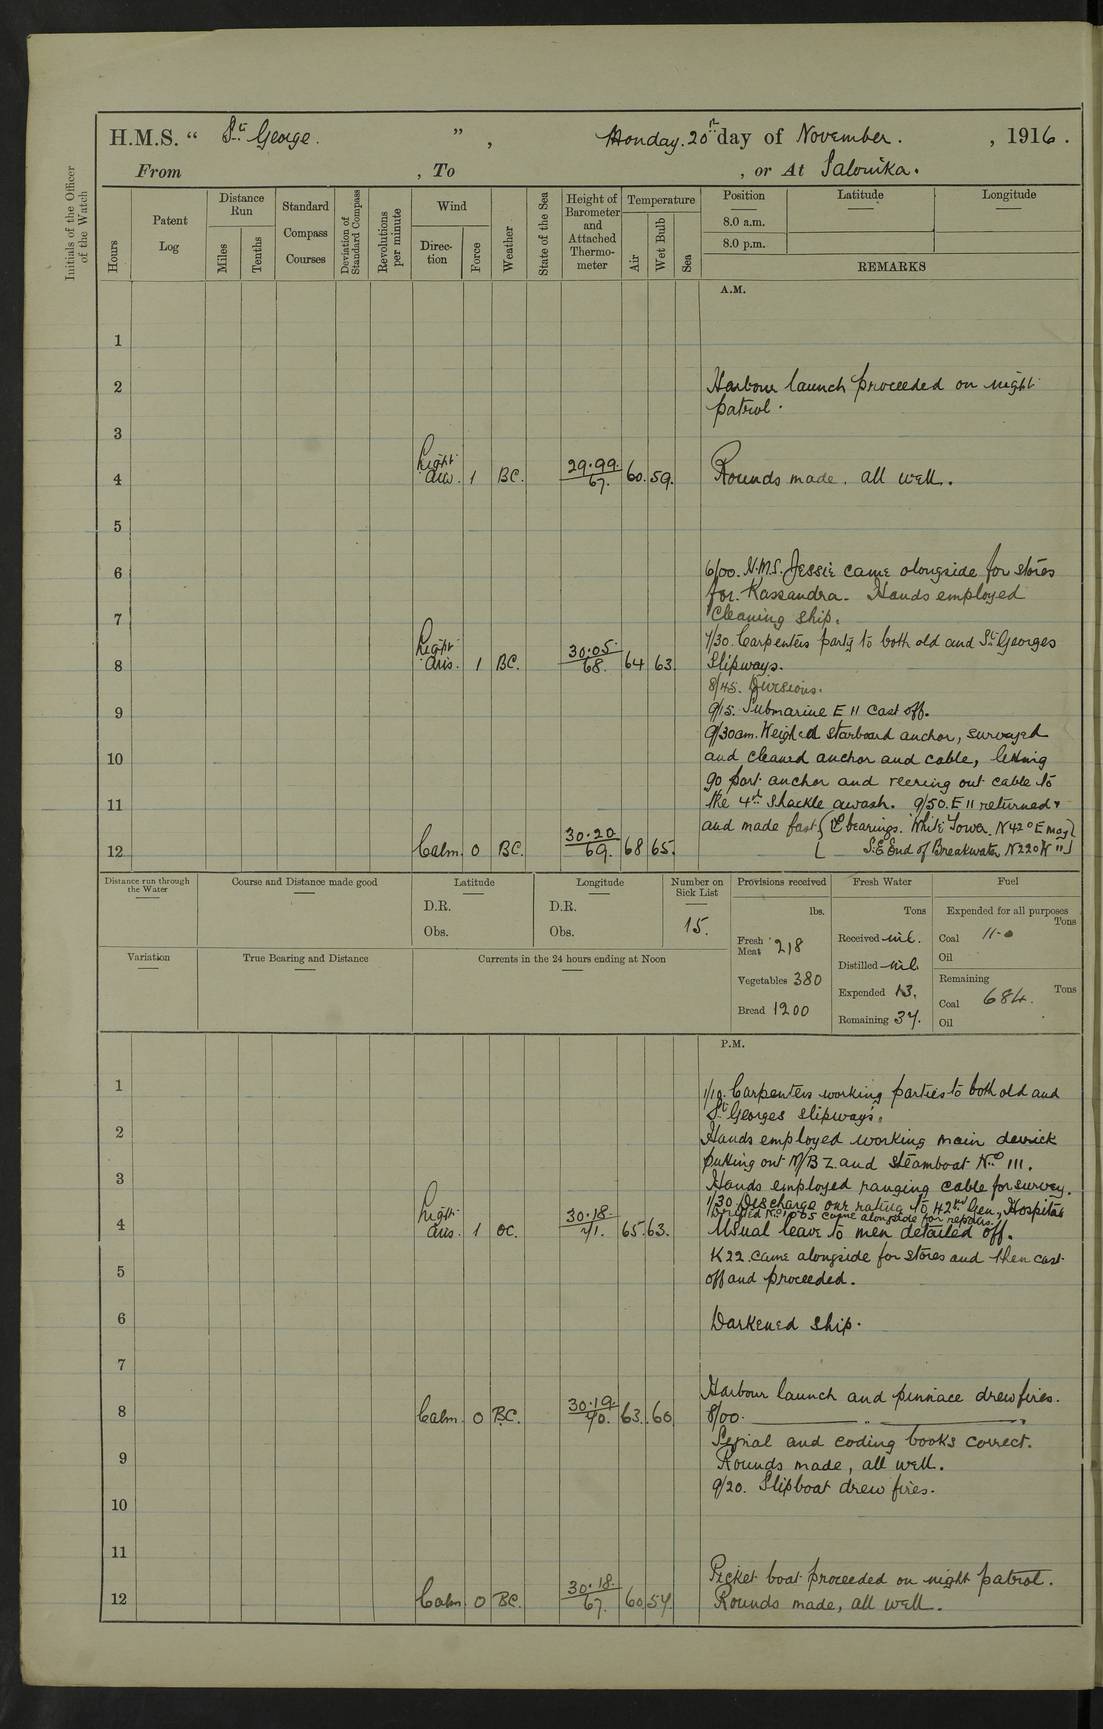 H.M.S. “ St. George. ”, Monday. 20th day of November. , 1916.
From , To , or At Salonika.
Initials of the Officer of the Watch
Hours
Patent Log
Distance Run
Miles
Tenths
Standard Compass Courses
Deviation of Standard Compass
Revolutions per minute
Wind
Direc-tion
Force
Weather
State of the Sea
Height of Barometer and Attached Thermo-meter
Temperature
Air
Wet Bulb
Sea
Position
Latitude
Longitude
8.0 a.m.
8.0 p.m.
REMARKS
A.M.
1
2 Harbour launch proceeded on night
patrol.
3
4 Light airs. 1 BC. 29.99. 67. 60. 59. Rounds made. all well.
5
6 6/00. H.M.S. Jessie came alongside for stores
for Kassandra. Hands employed
7 cleaning ship.
7/30. Carpenters party to both old and St. Georges
8 Light airs. 1 BC. 30.05. 68. 64 63. Slipways.
8/45. Divisions.
9 9/15. Submarine E 11 cast off.
9/30am. Weighed starboard anchor, surveyed
10 and cleaned anchor and cable, letting
go port anchor and veering out cable to
11 the 4th shackle awash. 9/50. E 11 returned &
and made fast { bearings. White Tower. N 42° E mag }
12 Calm. 0 BC. 30.20 69. 68 65. S.E End of Breakwater N 22° W "
Distance run through the Water
Course and Distance made good
Latitude
D.R.
Obs.
Longitude
D.R.
Obs.
Number on Sick List
15.
Provisions received
lbs.
Fresh Meat 218
Vegetables 380
Bread 1200
Fresh Water
Tons
Received nil.
Distilled nil
Expended 13.
Remaining 37.
Fuel
Expended for all purposes
Tons
Coal 11-0
Oil
Remaining
Tons
Coal 684.
Oil
Variation
True Bearing and Distance
Currents in the 24 hours ending at Noon
P.M.
1 1/10. Carpenters working parties to both old and
St Georges slipways.
2 Hands employed working main derrick
putting out M/B Z. and steamboat No. 111.
3 Hands employed ranging cable for survey.
1/30 Discharge one rating to 42nd Gen. Hospital
came alongside for repairs.
4 Light airs. 1 OC. 30.18. 71. 65. 63. Usual leave to men detailed off.
K 22. came alongside for stores and then cast
5 off and proceeded.
6 Darkened ship.
7
Harbour launch and pinnace drew fires.
8 Calm. 0 BC. 30.19. 70. 63. 60 8/00. ——— " ——— "
Signal and coding books correct.
9 Rounds made, all well.
9/20. Slipboat drew fires.
10
11
Picket boat proceeded on night patrol.
12 Calm 0 BC. 30.18. 67. 60. 57. Rounds made, all well.